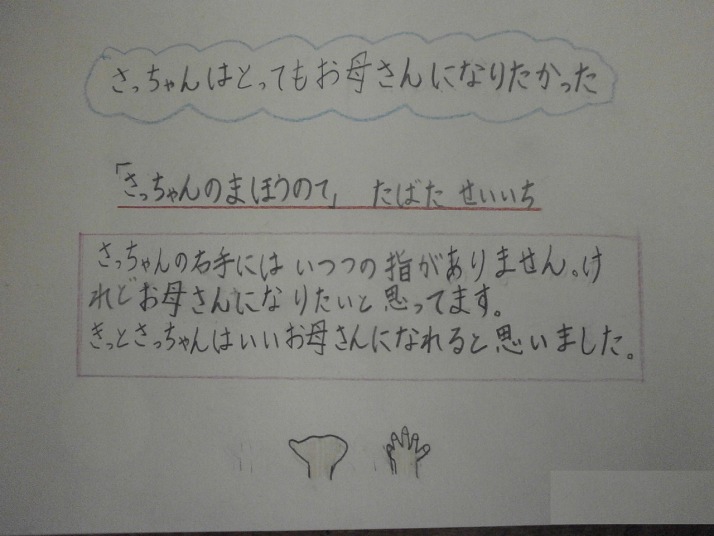 さっちゃんはとってもお母さんになりたかった
「さっちゃんのまほうのて」 たばた せいいち
さっちゃんの右手には いつつの指がありません。け
れどお母さんになりたいと思ってます。
きっとさっちゃんはいいお母さんになれると思いました。